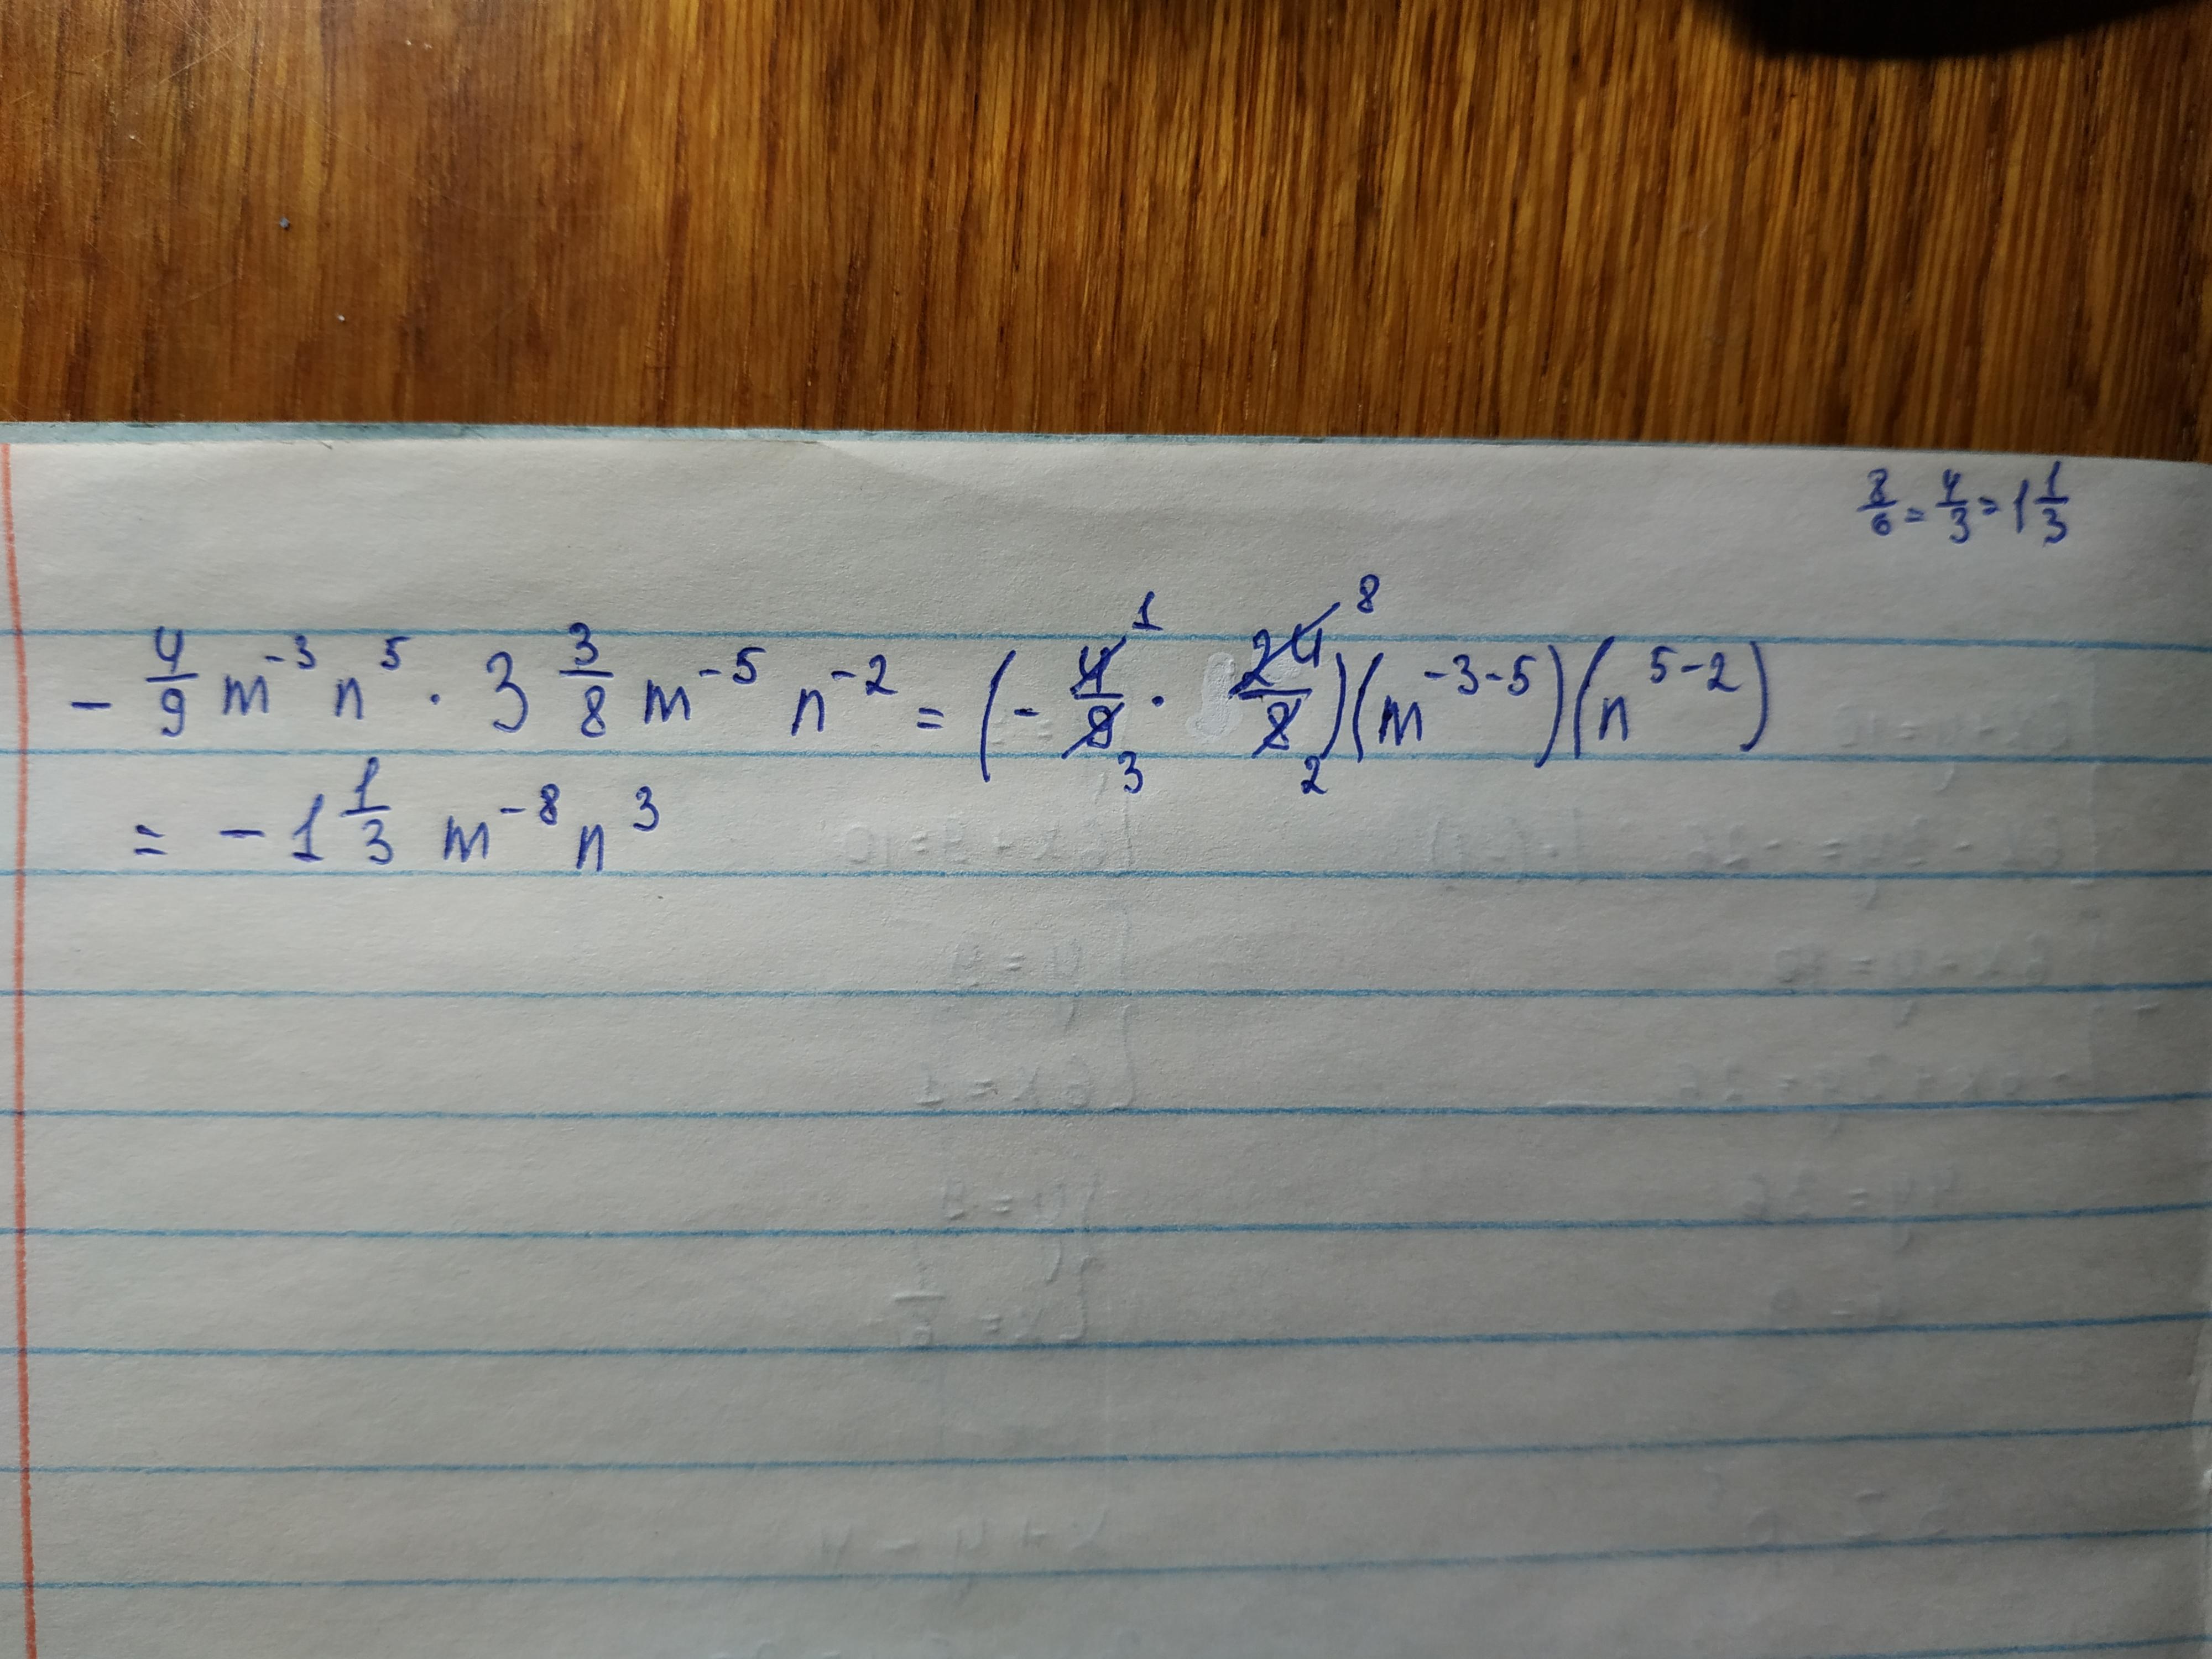 8/6 = 4/3 = 1 1/3
- 4/9 m^-3 n^5 · 3 3/8 m^-5 n^-2 = (- 4/9 · 24/8)(m^-3-5)(n^5-2) 1 3 8 2
= - 1 1/3 m^-8 n^3